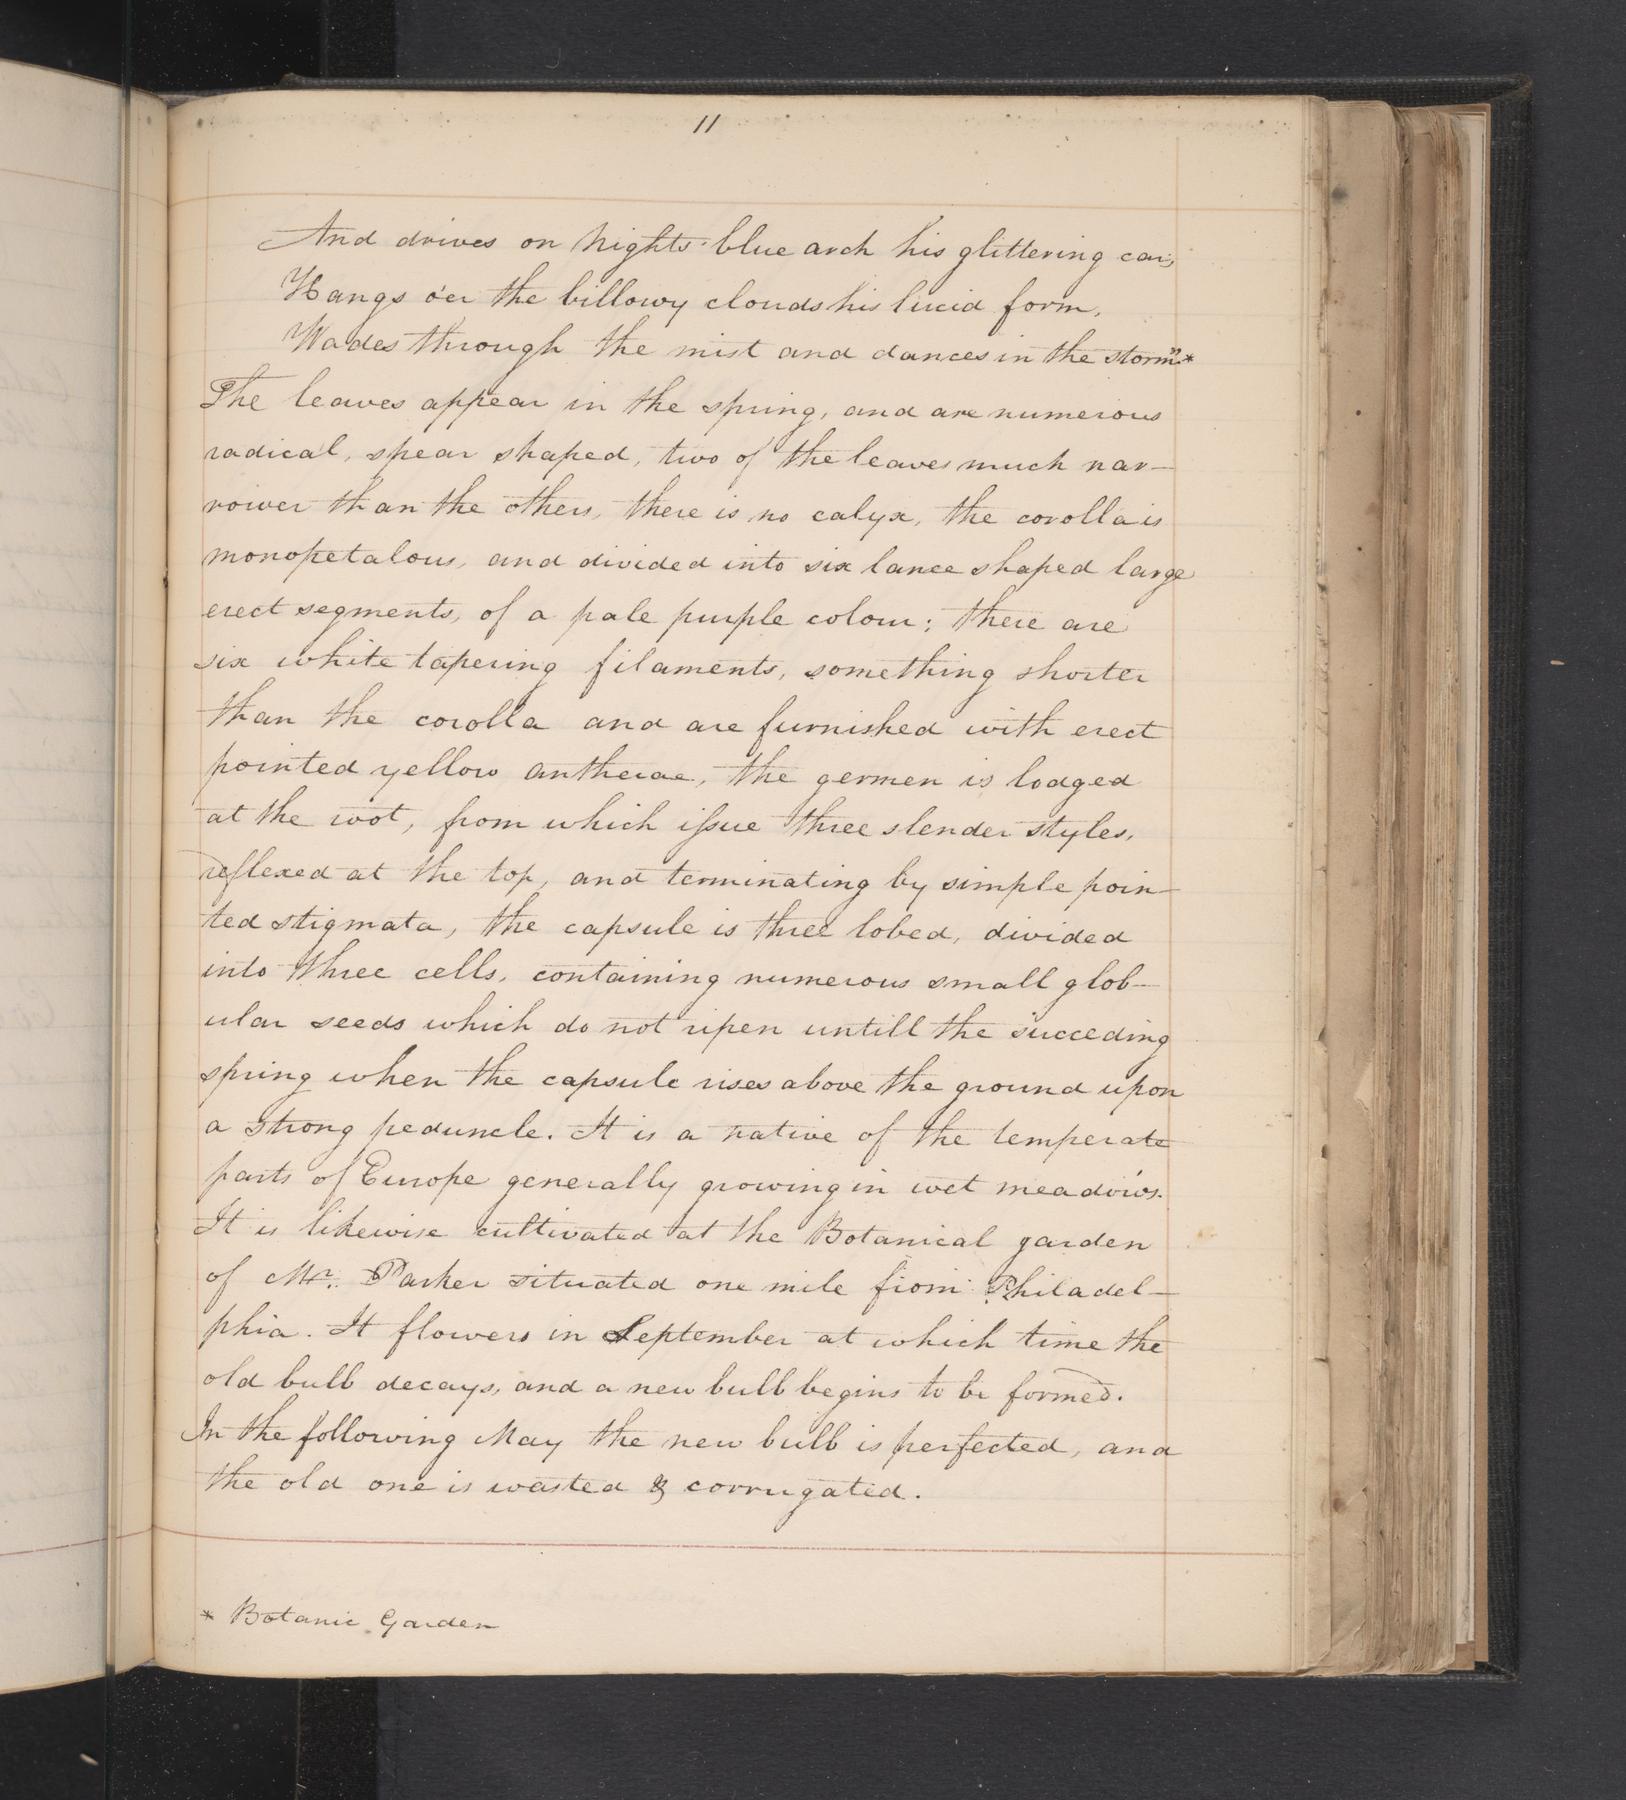 11
And drives on Nights blue arch his glittering car,
Hangs o'er the billowy clouds his lucid form,
Wades through the mist and dances in the storm"*
The leaves appear in the spring, and are numerous
radical, spear shaped, two of the leaves much nar-
rower than the others, there is no calyx, the corolla is
monopetalous, and divided into six lance shaped large
erect segments, of a pale purple colour; there are
six white tapering filaments, something shorter
than the corolla and are furnished with erect
pointed yellow antherae, the germen is lodged
at the root, from which issue three slender styles,
reflexed at the top, and terminating by simple poin-
ted stigmata, the capsule is three lobed, divided
into three cells, containing numerous small glob-
ular seeds which do not ripen untill the succeding
spring when the capsule rises above the ground upon
a strong peduncle. It is a native of the temperate
parts of Europe generally growing in wet meadows.
It is likewise cultivated at the Botanical garden
of Mr. Parker situated one mile from Philadel-
phia. It flowers in September at which time the
old bulb decays, and a new bulb begins to be formed.
In the following May the new bulb is perfected, and
the old one is wasted & corrugated.
* Botanic Garden